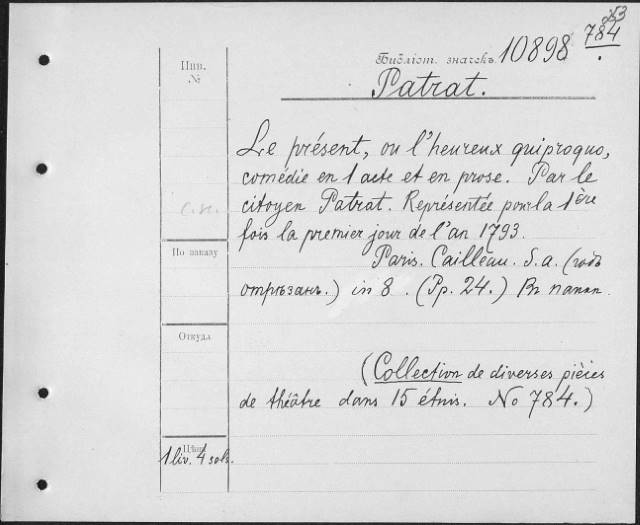 53
784
Библіот. значекъ 10898
Инв.
№
Patrat.
Le présent, ou l'heureux quiproquo,
comédie en 1 acte et en prose. Par le
citoyen Patrat. Représentée pour la 1ère
fois la premier jour de l'an 1793.
Paris. Cailleau. S. a. (годъ
отрѣзанъ.) in 8. (Pp. 24.) Въ папк.
По заказу
Откуда
(Collection de diverses pièces
de théâtre dans 15 étuis. No 784.)
Цѣна
1 liv. 4 sols.